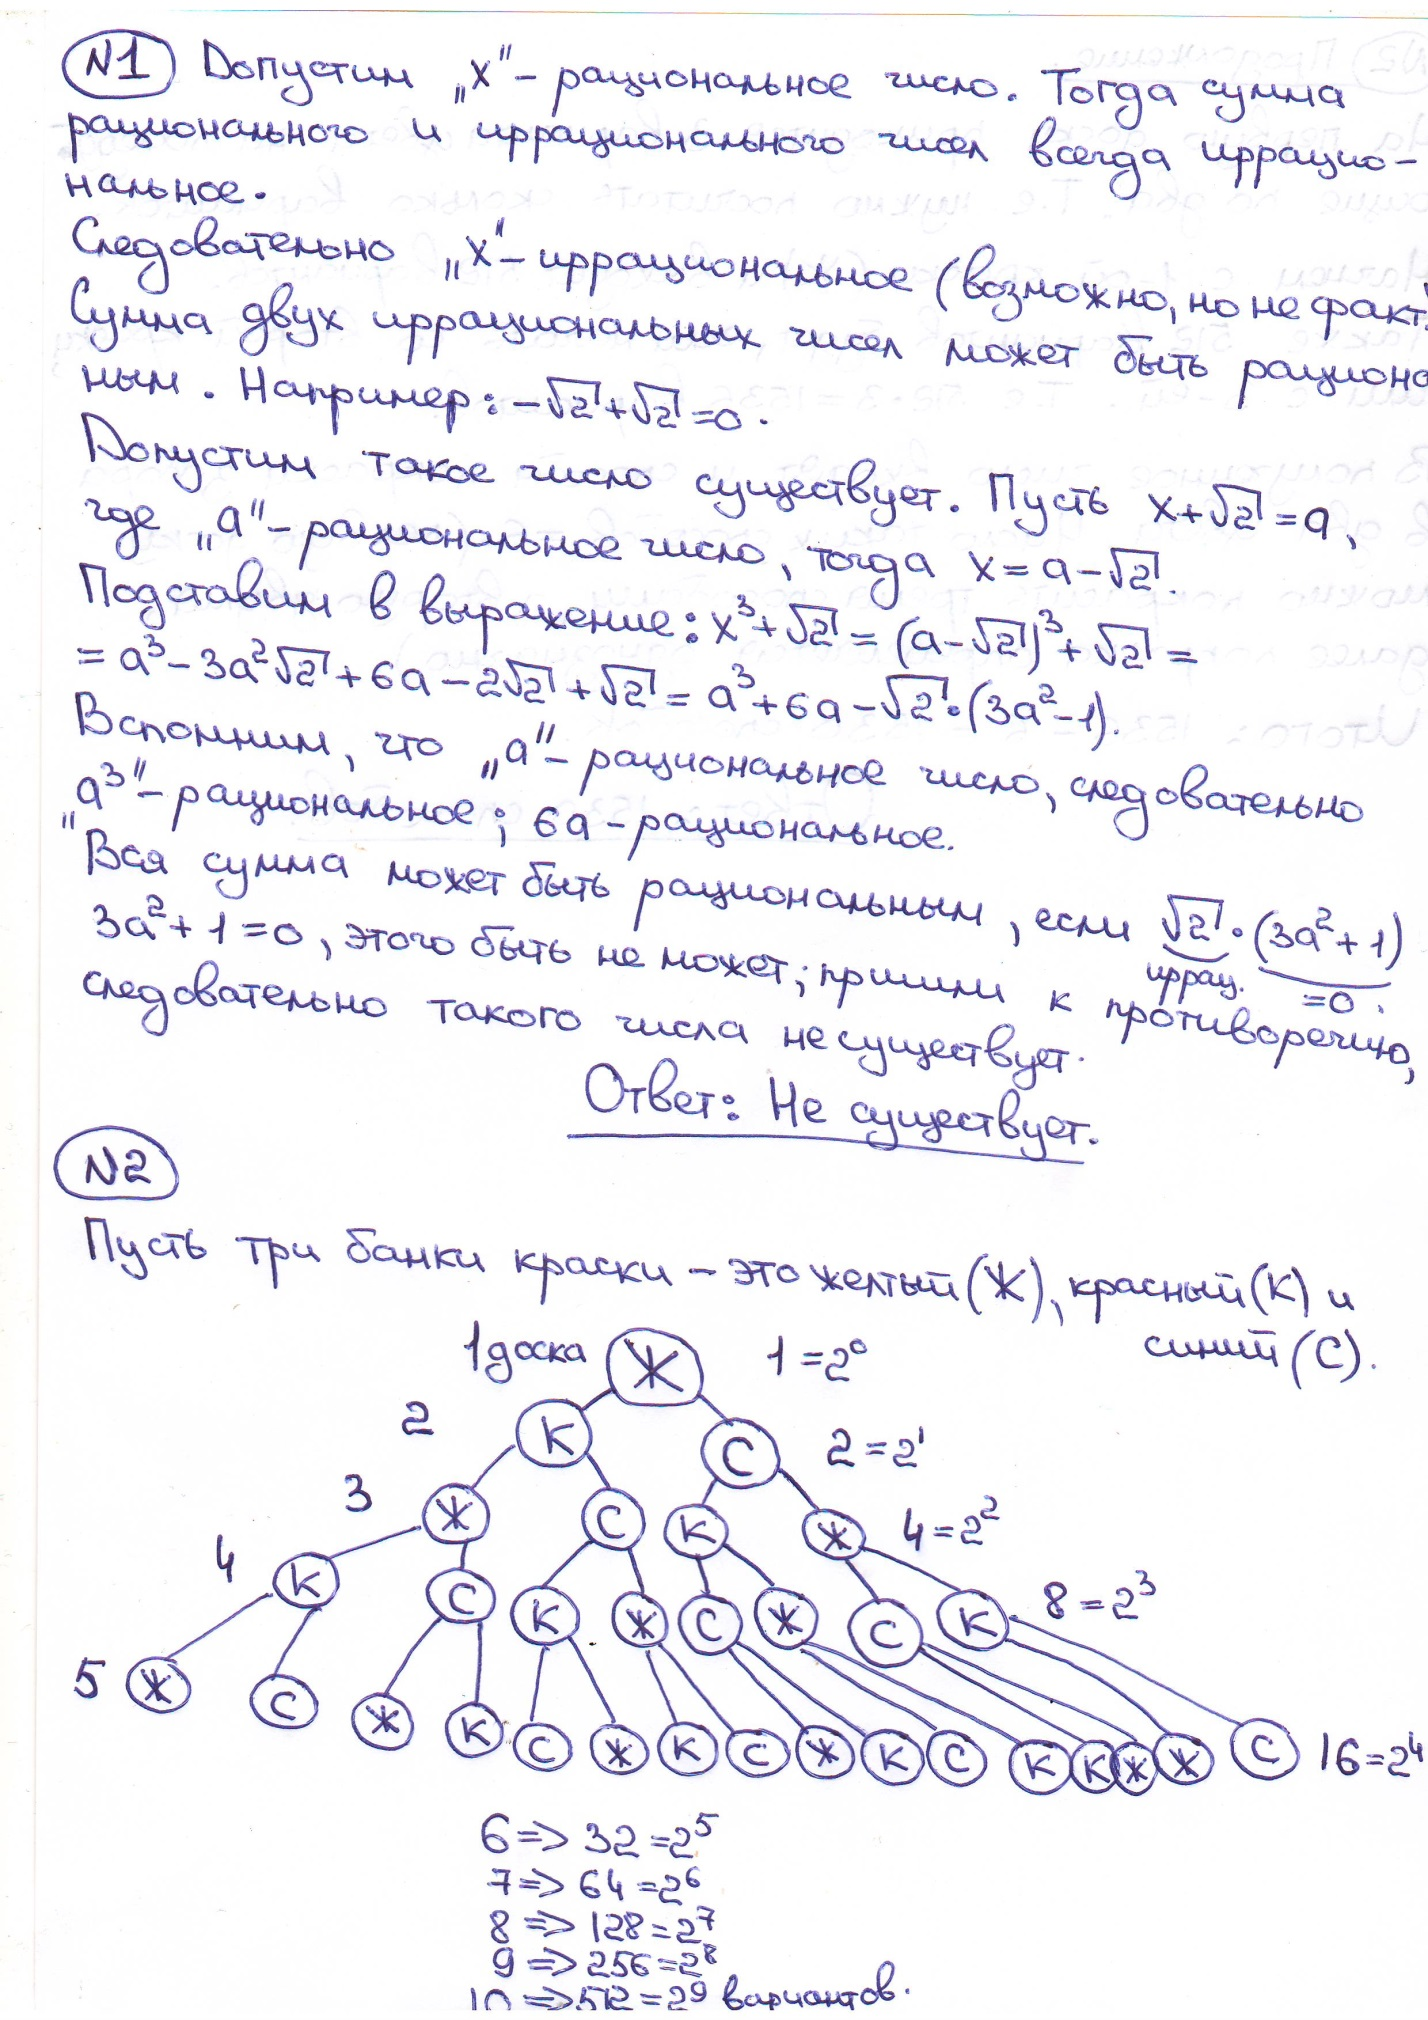 N1 Допустим „x" – рациональное число. Тогда сумма
рационального и иррационального чисел всегда иррацио-
нальное.
Следовательно „x" – иррациональное (возможно, но не факт!
Сумма двух иррациональных чисел может быть рационо
ным. Например: -√2+√2=0.
Допустим такое число существует. Пусть x+√2=a,
где „a" – рациональное число, тогда x=a-√2.
Подставим в выражение: x³+√2=(a-√2)³+√2=
=a³-3a²√2+6a-2√2+√2=a³+6a-√2·(3a²-1).
Вспомним, что „a" – рациональное число, следовательно
„a³" – рациональное; 6a – рациональное.
Вся сумма может быть рациональным, если √2·(3a²+1)
иррац. =0.
3a²+1=0, этого быть не может; пришли к противоречию,
следовательно такого числа не существует.
Ответ: Не существует.
N2
Пусть три банки краски – это желтый (Ж), красный (К) и
синий (С).
1 доска Ж 1=2⁰
2 К С 2=2¹
3 Ж С К Ж 4=2²
4 К С К Ж С Ж С К 8=2³
5 Ж С Ж К С Ж К С Ж К С К К Ж Ж С 16=2⁴
6 => 32=2⁵
7 => 64=2⁶
8 => 128=2⁷
9 => 256=2⁸
10 => 512=2⁹ вариантов.